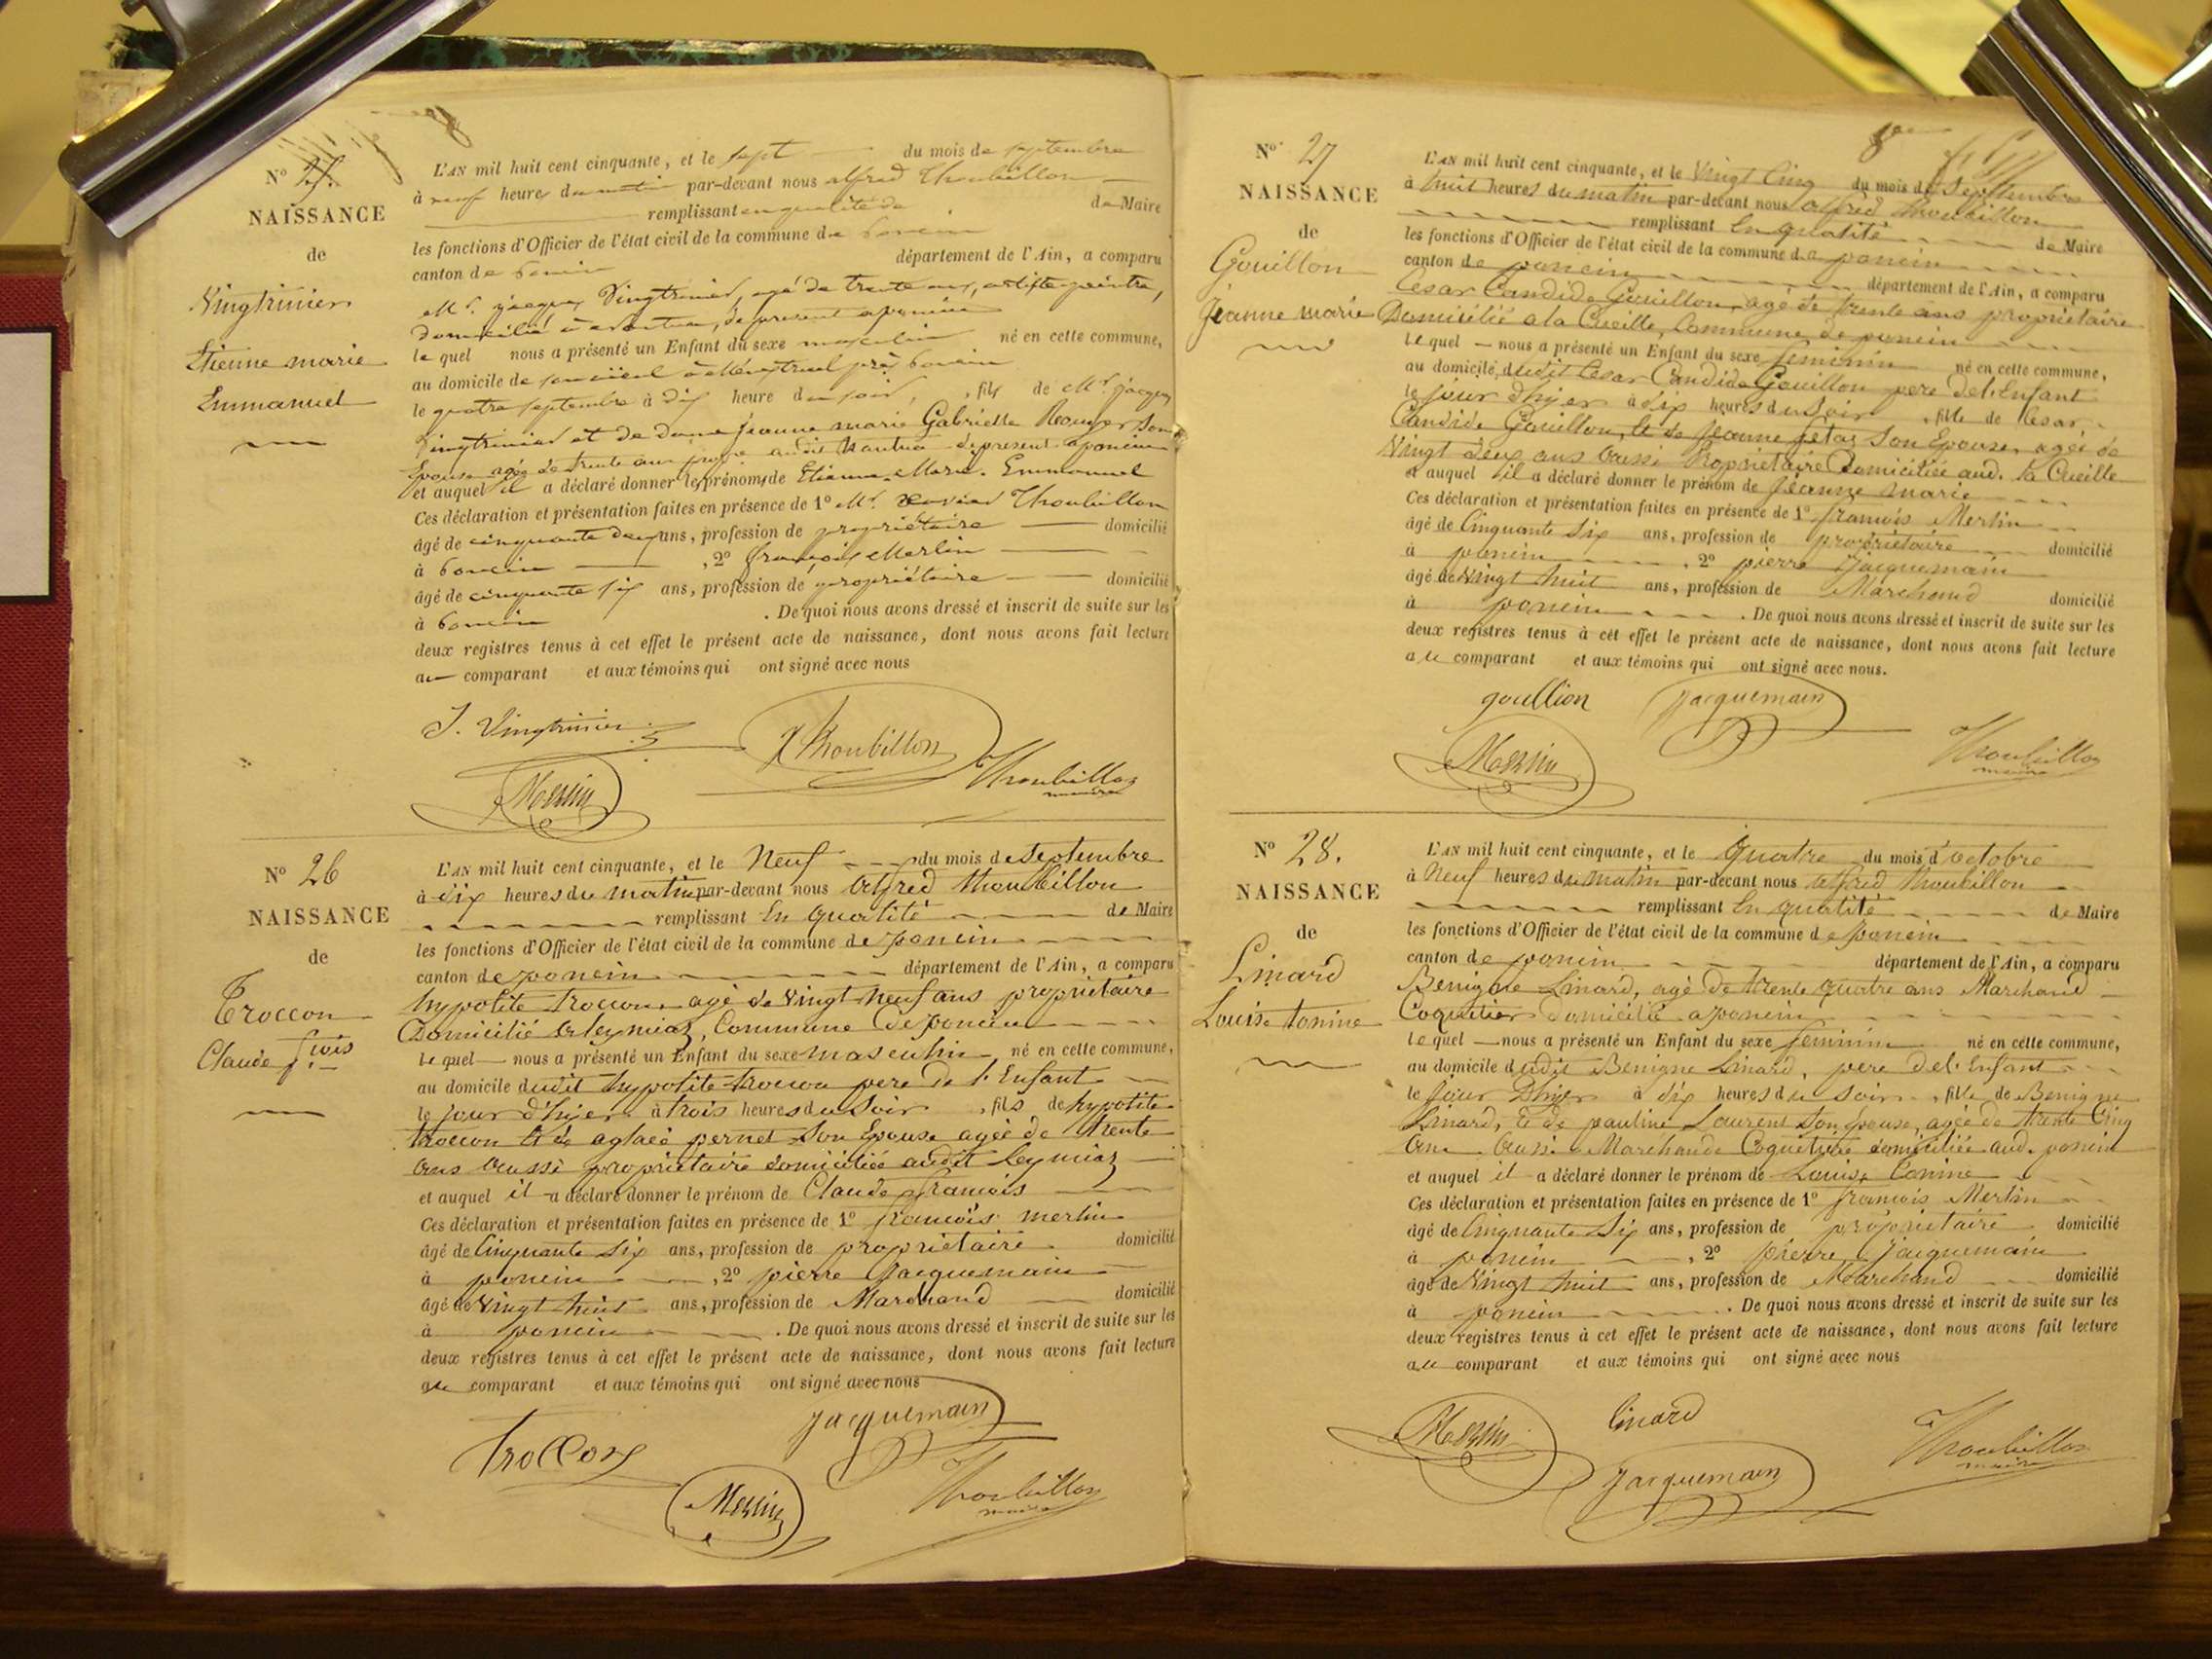 8
N° 25.
NAISSANCE
de
Vingtrinier
Etienne marie
Emmanuel
L'AN mil huit cent cinquante, et le sept du mois de septembre
à neuf heures du matin par-devant nous alfred Thoubillon
remplissant en qualité de de Maire
les fonctions d'Officier de l'état civil de la commune de Poncin
canton de Poncin département de l'Ain, a comparu
Mr. jacques Vingtrinier, agé de trente ans, artiste peintre,
domicilié à nantua, de present a poncin
le quel nous a présenté un Enfant du sexe masculin né en cette commune,
au domicile de à Ménestruel près Poncin
le quatre septembre à dix heure du soir, , fils de Mr. jacques
Vingtrinier et de dame jeanne marie Gabrielle Rouyer son
Epouse agée de trente ans audit Nantua de present a poncin
et auquel il a déclaré donner les prénoms de Etienne Marie Emmanuel
Ces déclaration et présentation faites en présence de 1° Mr. xavier Thoubillon
âgé de cinquante deux ans, profession de propriétaire domicilié
à Poncin , 2° françois Merlin
âgé de cinquante six ans, profession de propriétaire domicilié
à Poncin . De quoi nous avons dressé et inscrit de suite sur les
deux registres tenus à cet effet le présent acte de naissance, dont nous avons fait lecture
au comparant et aux témoins qui ont signé avec nous
J. Vingtrinier X Thoubillon
Merlin Thoubillon
maire
N° 26
NAISSANCE
de
Troccon
Claude fcois
L'AN mil huit cent cinquante, et le Neuf du mois de Septembre
à dix heures du matin par-devant nous alfred thoubillon
remplissant En qualité de Maire
les fonctions d'Officier de l'état civil de la commune de poncin
canton de poncin département de l'Ain, a comparu
hypolite troccon agé de Vingt Neuf ans propriétaire
Domicilié a leymiaz, Commune de poncin
le quel nous a présenté un Enfant du sexe masculin né en cette commune,
au domicile dudit hypolite troccon pere de l'Enfant
le jour d'hyer à trois heures du soir , fils de hypolite
troccon & de aglaée pernet son Epouse agée de trente
ans aussi propriétaire domiciliée audit leymiaz
et auquel il a déclaré donner le prénom de Claude françois
Ces déclaration et présentation faites en présence de 1° françois merlin
âgé de Cinquante six ans, profession de propriétaire domicilié
à poncin , 2° pierre Jacquemain
âgé de Vingt huit ans, profession de Marchand domicilié
à poncin . De quoi nous avons dressé et inscrit de suite sur les
deux registres tenus à cet effet le présent acte de naissance, dont nous avons fait lecture
au comparant et aux témoins qui ont signé avec nous
Troccon Jacquemain
Merlin Thoubillon
maire
8
N° 27
NAISSANCE
de
Gouillon
Jeanne marie
L'AN mil huit cent cinquante, et le Vingt Cinq du mois de Septembre
à huit heures du matin par-devant nous alfred thoubillon
remplissant En qualité de Maire
les fonctions d'Officier de l'état civil de la commune de poncin
canton de poncin département de l'Ain, a comparu
Cesar Candide Gouillon, agé de trente ans propriétaire
Domicilié a la Cueille, Commune de poncin
le quel nous a présenté un Enfant du sexe feminin né en cette commune,
au domicile dudit Cesar Candide Gouillon pere de l'Enfant
le jour d'hyer à dix heures du soir , fille de Cesar
Candide Gouillon, & de jeanne son Epouse, agée de
Vingt deux ans aussi Propriétaire Domiciliée aud. la Cueille
et auquel il a déclaré donner le prénom de Jeanne marie
Ces déclaration et présentation faites en présence de 1° françois Merlin
âgé de Cinquante Six ans, profession de propriétaire domicilié
à poncin , 2° pierre Jacquemain
âgé de Vingt huit ans, profession de Marchand domicilié
à poncin . De quoi nous avons dressé et inscrit de suite sur les
deux registres tenus à cet effet le présent acte de naissance, dont nous avons fait lecture
au comparant et aux témoins qui ont signé avec nous.
goullion Jacquemain
Merlin Thoubillon
maire
N° 28.
NAISSANCE
de
Linard
Louise tonine
L'AN mil huit cent cinquante, et le Quatre du mois d'octobre
à Neuf heures du matin par-devant nous alfred thoubillon
remplissant En qualité de Maire
les fonctions d'Officier de l'état civil de la commune de poncin
canton de poncin département de l'Ain, a comparu
Benigne Linard, agé de trente quatre ans Marchand
Coquetier Domicilié a poncin
le quel nous a présenté un Enfant du sexe feminin né en cette commune,
au domicile dudit Benigne Linard, pere de l'Enfant
le jour D'hyer à dix heures du soir , fille de Benigne
Linard, & de pauline Laurent son épouse, agée de trente Cinq
ans aussi Marchande Coquetière domiciliée aud. poncin
et auquel il a déclaré donner le prénom de Louise tonine
Ces déclaration et présentation faites en présence de 1° françois Merlin
âgé de Cinquante Six ans, profession de propriétaire domicilié
à poncin , 2° pierre Jacquemain
âgé de Vingt huit ans, profession de Marchand domicilié
à poncin . De quoi nous avons dressé et inscrit de suite sur les
deux registres tenus à cet effet le présent acte de naissance, dont nous avons fait lecture
au comparant et aux témoins qui ont signé avec nous
Merlin linard Thoubillon
Jacquemain maire